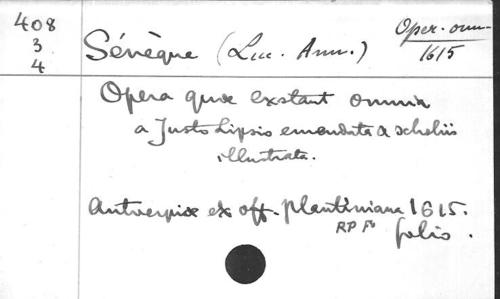 408
3
4
Sénèque (Luc. Ann.)
Oper. omn.
1615
Opera quæ exstant omnia
a Justo Lipsio emendata & scholiis
illustrata.
Antverpiæ ex off. plantiniana 1615.
RP Fo folio.